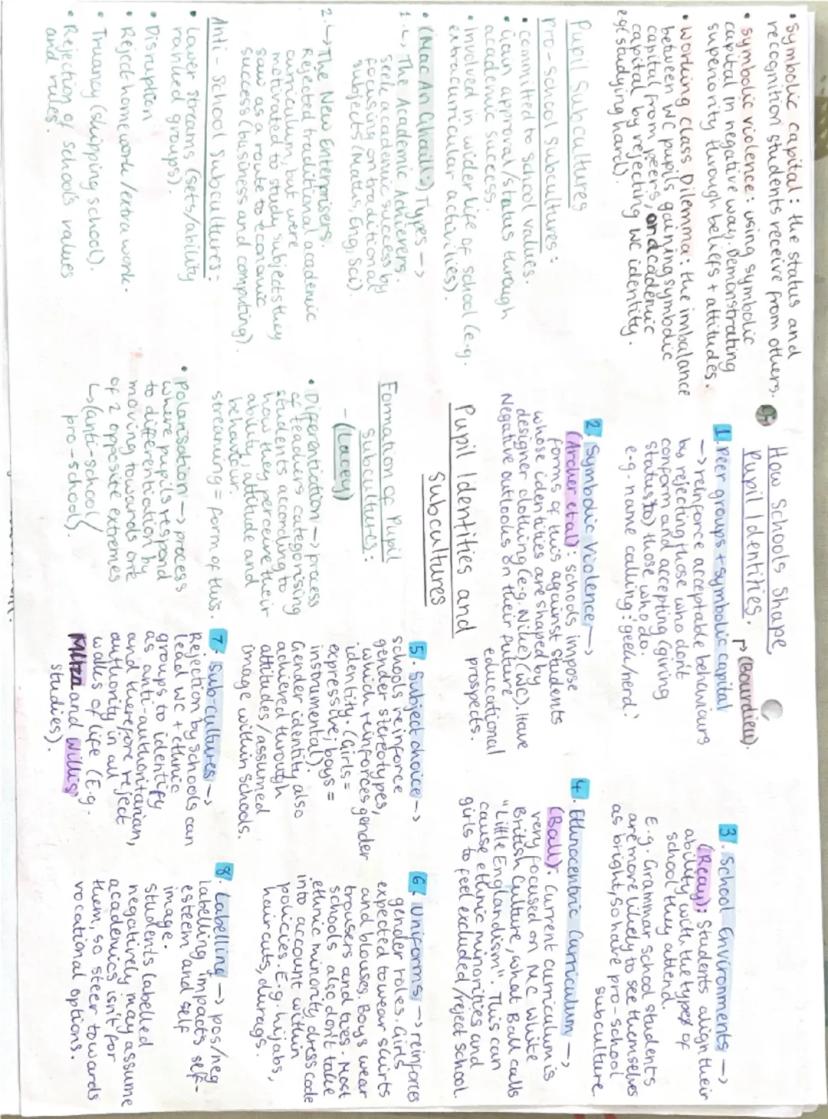 • Symbolic capital: the status and
recognition students receive from others.
• Symbolic violence: using symbolic
capital in negative way. Demonstrating
superiority through beliefs + attitudes.
• Working class Dilemma: the imbalance
between WC pupils gaining symbolic
capital from peers, or academic
capital by rejecting WC identity.
eg (studying hard).
Pupil Subcultures
pro-school subcultures:
• committed to school values.
• Gain approval/status through
academic success.
• involved in wider life of school (e.g.
extracuricular activities).
• (Mac An Ghaill) Types →
1. ↳ The Academic Achievers.
seek academic success by
focusing on traditional
subjects (Maths, Eng, Sci).
2. ↳ The New Enterprisers.
Rejected traditional academic
curriculum, but were
motivated to study subjects they
saw as a route to economic
success (business and computing).
Anti-school Subcultures:
• Lower streams (sets/ability
ranked groups).
• Disruption
• Reject homework/extra work.
• Truancy (skipping school).
• Rejection of schools values
and rules.
How Schools Shape
Pupil Identities.
↱ (Bourdieu).
1. Peer groups + symbolic capital
→ reinforce acceptable behaviours
by rejecting those who don't
conform and accepting (giving
status to) those who do.
e.g. name calling: geek/nerd.
2 Symbolic Violence →
(Archer et al): schools impose
forms of this against students
whose identities are shaped by
designer clothing (e.g. Nike) (WC). Have
Negative outlooks on their future
educational
prospects.
Pupil Identities and
subcultures
Formation of Pupil
subcultures:
- (Lacey)
• Differentiation → process
of teachers categorising
students according to
how they perceive their
ability, attitude and
behaviour.
streaming = form of this.
• Polarisation → process
where pupils respond
to differentiation by
moving towards one
of 2 opposite extremes
↳ (anti-school/
pro-school).
3. School Environments →
(Reay): Students align their
ability with the type of
school they attend.
E.g. Grammar school students
are more likely to see themselves
as bright, so have pro-school
subculture
4. Ethnocentric Curriculum →
(Ball). Current curriculum is
very focused on MC White
British Culture, what Ball calls
"Little Englandism". This can
cause ethnic minorities and
girls to feel excluded/reject school.
5. Subject choice →
schools reinforce
gender stereotypes,
which reinforces gender
identity. (Girls =
expressive, boys =
instrumental).
Gender identity also
achieved through
attitudes/assumed
image within schools.
6. Uniforms → reinforces
gender roles. Girls
expected to wear skirts
and blouses. Boys wear
trousers and ties. Most
schools also don't take
ethnic minority dress code
into account within
policies. E.g. hijabs,
haircuts, durags.
7. Sub-cultures →
Rejection by schools can
lead WC + ethnic
groups to identify
as anti-authoritarian,
and therefore reject
authority in all
walks of life (E.g.
and Willis
studies).
8. Labelling → pos/neg
labelling impacts self-
esteem and self
image.
Students labelled
negatively may assume
academics isn't for
them, so steer towards
vocational options.